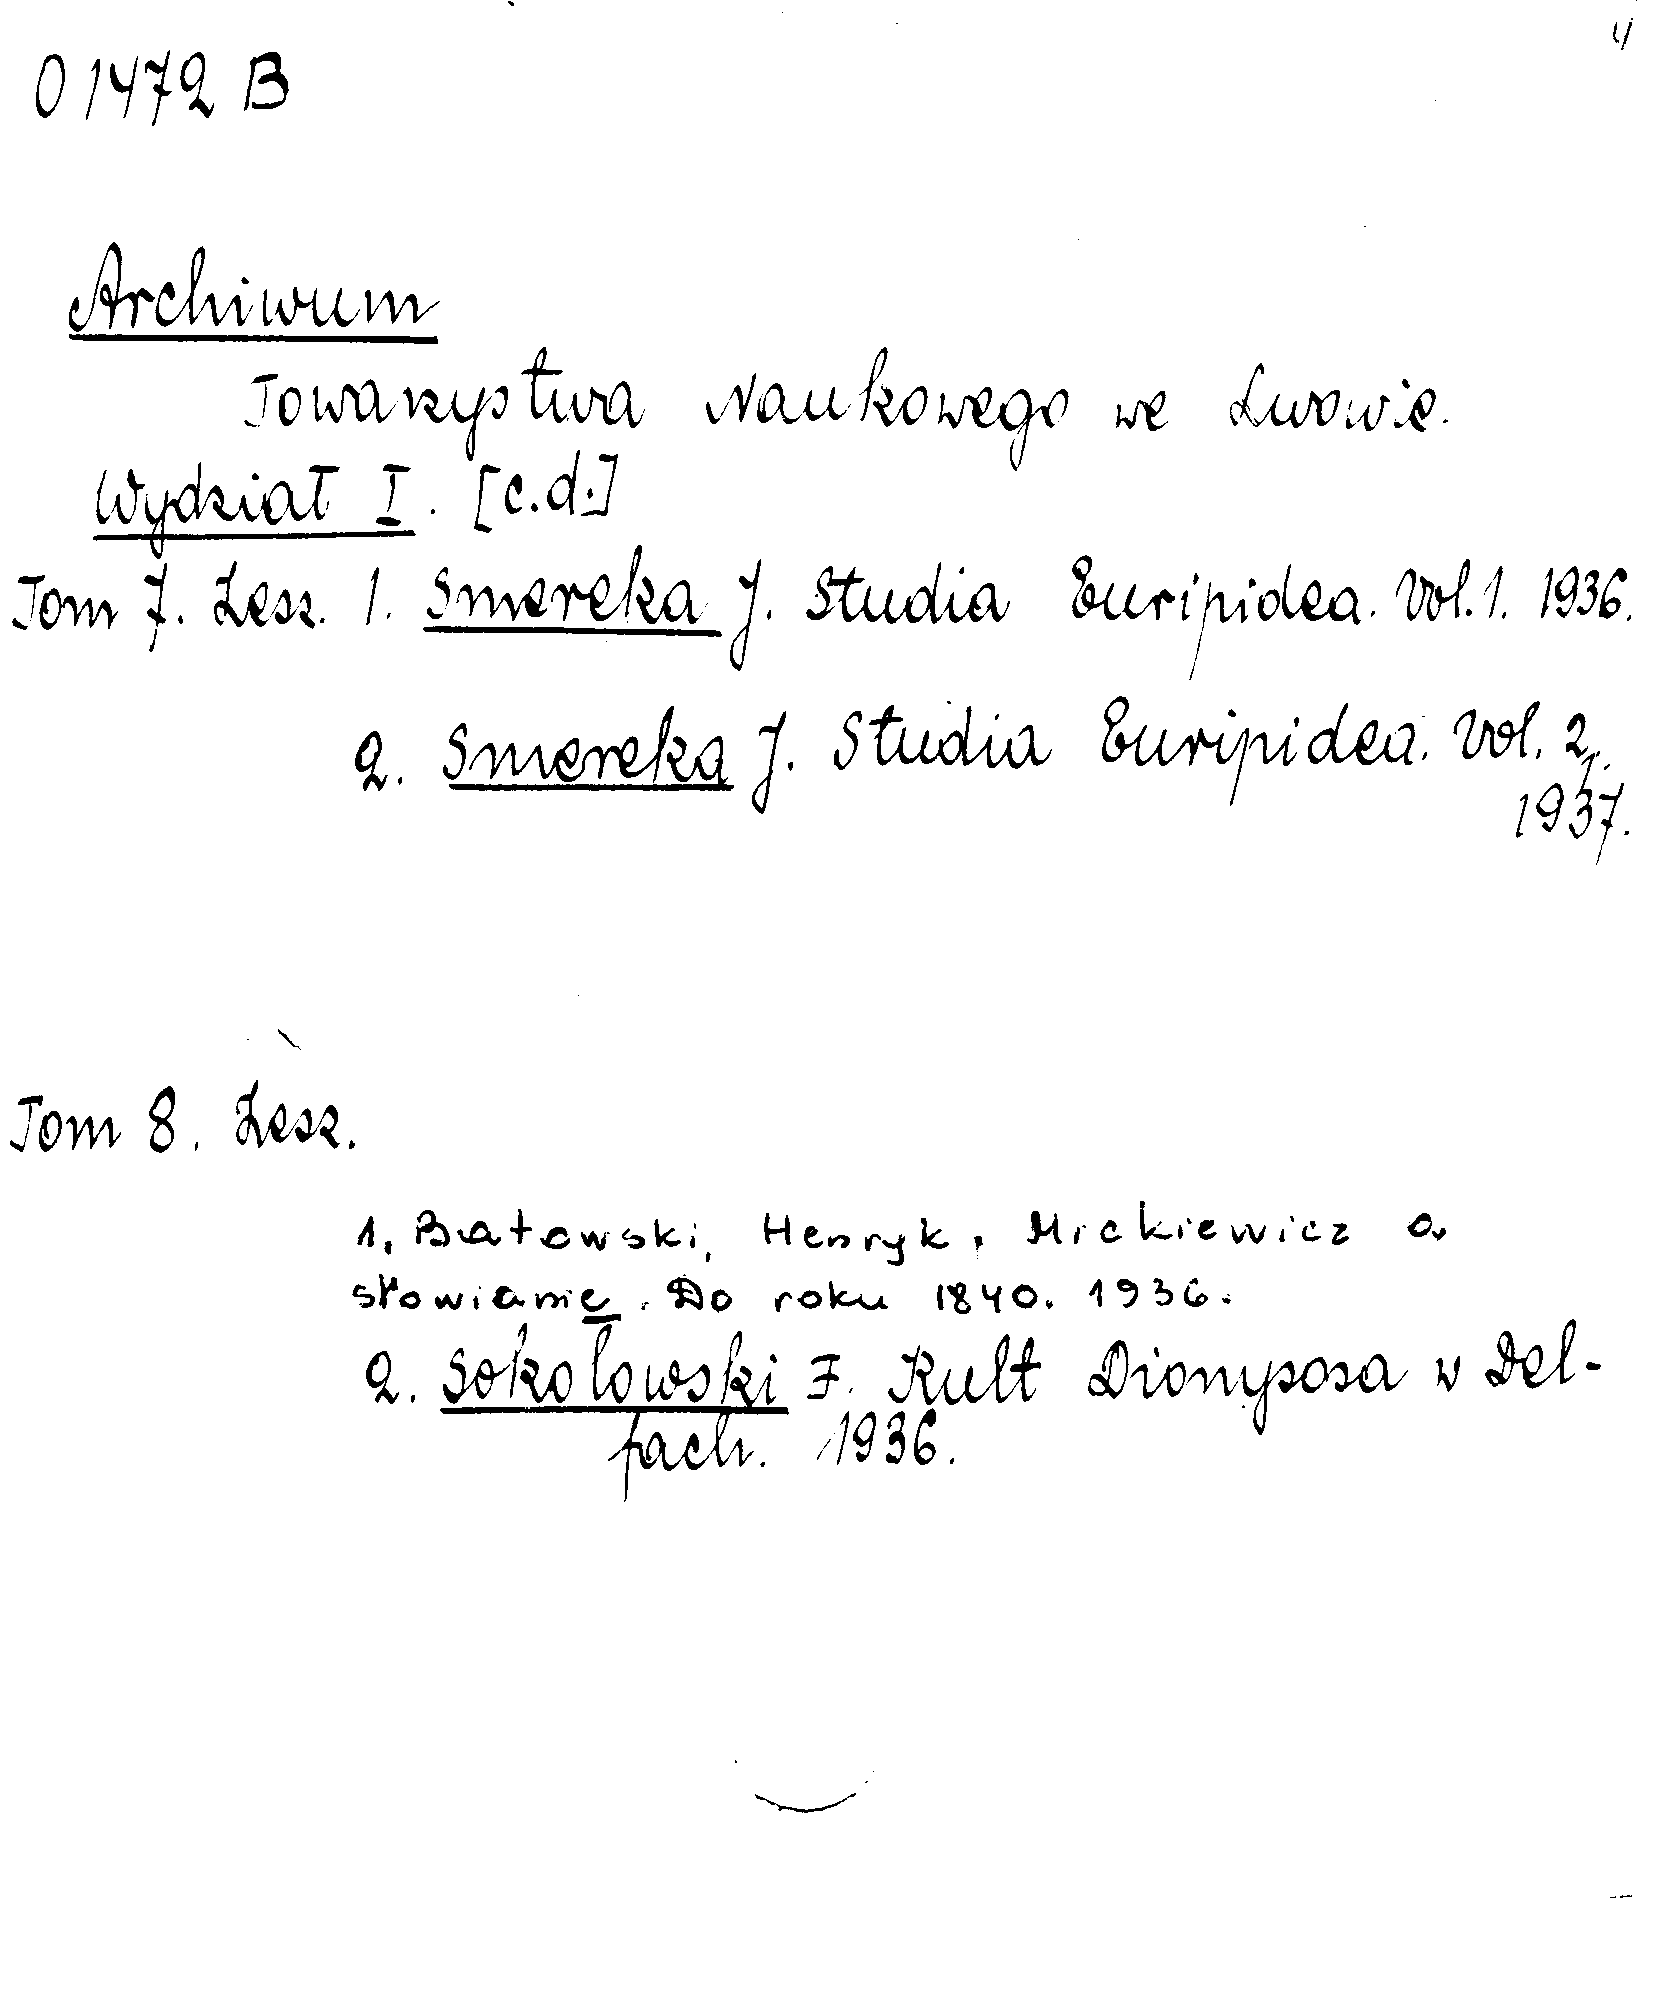 4
01472 B
Archiwum
Towarzystwa Naukowego we Lwowie.
Wydział I. [c.d.]
Tom 7. Zesz. 1. Smereka J. Studia Euripidea. Vol. 1. 1936.
2. Smereka J. Studia Euripidea. Vol. 2.
1937.
Tom 8. Zesz.
1. Batowski, Henryk, Mickiewicz a
słowianie. Do roku 1840. 1936.
2. Sokołowski F. Kult Dionysosa w Del-
fach. 1936.